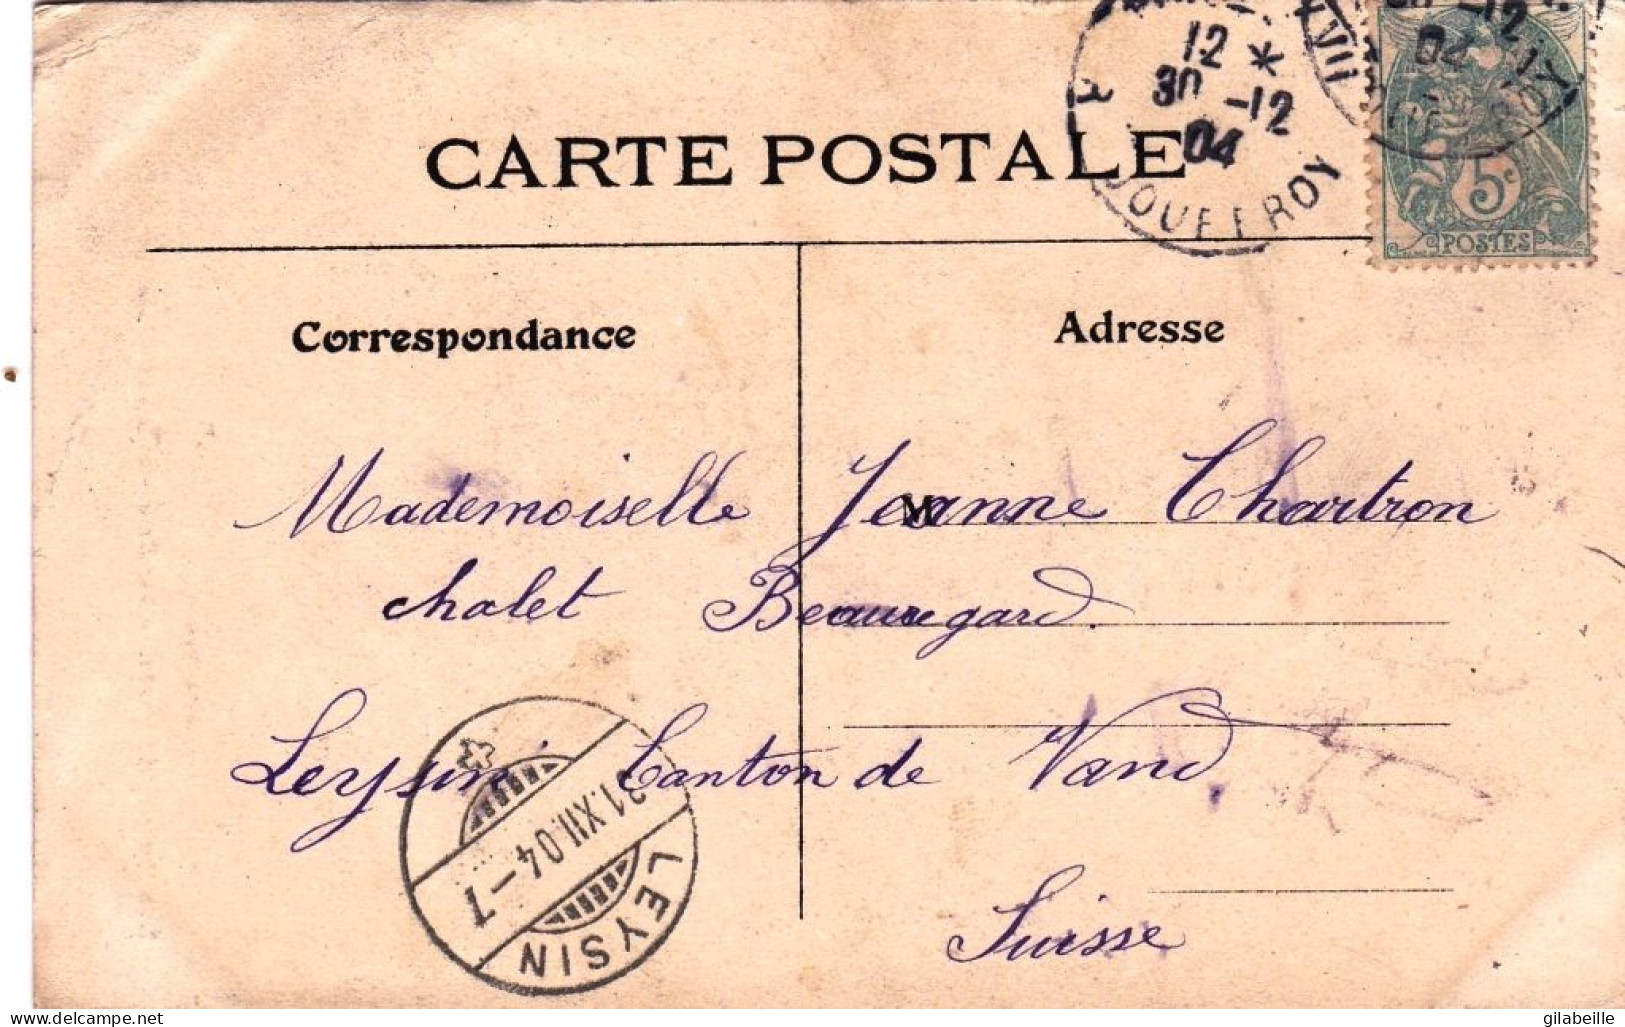 CARTE POSTALE
12 *
30 -12
04
R JOUFFROY
XVII
30 -12
04
5c
POSTES
Correspondance
Adresse
M
Mademoiselle Jeanne Chartron
chalet Beauregard.
Leysin Canton de Vaud,
Suisse
31.XII.04-7
LEYSIN
delcampe.net
gilabeille